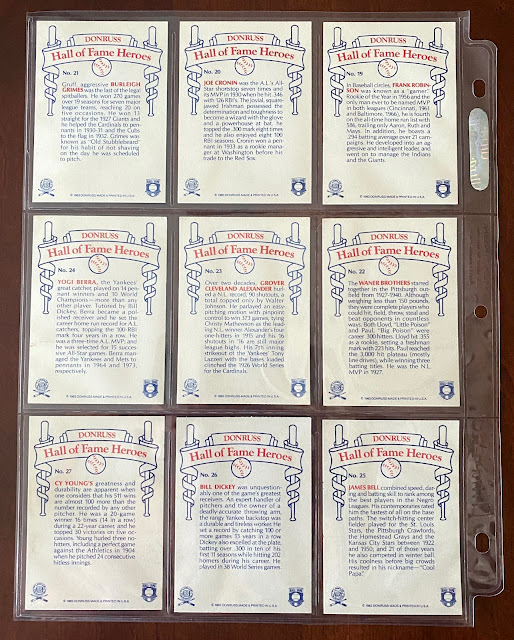 DONRUSS
Hall of Fame Heroes
No. 21
Gruff, aggressive BURLEIGH
GRIMES was the last of the legal
spitballers. He won 270 games
over 19 seasons for seven major
league teams, reaching 20 on
five occasions. He won 13
straight for the 1927 Giants and
he helped the Cardinals to pen-
nants in 1930-31 and the Cubs
to the flag in 1932. Grimes was
known as "Old Stubblebeard"
for his habit of not shaving
on the day he was scheduled
to pitch.
© 1983 DONRUSS MADE & PRINTED IN U.S.A.
DONRUSS
Hall of Fame Heroes
No. 20
JOE CRONIN was the A.L.'s All-
Star shortstop seven times and
its MVP in 1930 when he hit .346
with 126 RBI's. The jovial, square-
jawed Irishman possessed the
determination and toughness to
become a wizard with the glove
and a powerhouse at bat. He
topped the .300 mark eight times
and he also enjoyed eight 100
RBI seasons. Cronin won a pen-
nant in 1933 as a rookie mana-
ger at Washington before his
trade to the Red Sox.
© 1983 DONRUSS MADE & PRINTED IN U.S.A.
DONRUSS
Hall of Fame Heroes
No. 19
In Baseball circles, FRANK ROBIN-
SON was known as a "gamer."
Rookie of the Year in 1956 and the
only man ever to be named MVP
in both leagues (Cincinnati, 1961
and Baltimore, 1966), he is fourth
on the all-time home run list with
586, trailing only Aaron, Ruth and
Mays. In addition, he boasts a
.294 batting average over 21 cam-
paigns. He developed into an ag-
gressive and intelligent leader, and
went on to manage the Indians
and the Giants.
© 1983 DONRUSS MADE & PRINTED IN U.S.A.
DONRUSS
Hall of Fame Heroes
No. 24
YOGI BERRA, the Yankees'
great catcher, played on 14 pen-
nant winners and 10 World
Champions—more than any
other player. Tutored by Bill
Dickey, Berra became a pol-
ished receiver and he set the
career home run record for A.L.
catchers, topping the 100-RBI
mark four years in a row. He
was a three-time A.L. MVP, and
he was selected for 15 succes-
sive All-Star games. Berra man-
aged the Yankees and Mets to
pennants in 1964 and 1973,
respectively.
© 1983 DONRUSS MADE & PRINTED IN U.S.A.
DONRUSS
Hall of Fame Heroes
No. 23
Over two decades, GROVER
CLEVELAND ALEXANDER hurl-
ed a N.L. record, 90 shutouts, a
total topped only by Walter
Johnson. He paired an easy
pitching motion with pinpoint
control to win 373 games, tying
Christy Mathewson as the lead-
ing N.L. winner. Alexander's four
one-hitters in 1915 and his 16
shutouts in '16 are still major
league highs. His 7th inning
strikeout of the Yankees' Tony
Lazzeri with the bases loaded
clinched the 1926 World Series
for the Cardinals.
© 1983 DONRUSS MADE & PRINTED IN U.S.A.
DONRUSS
Hall of Fame Heroes
No. 22
The WANER BROTHERS starred
together in the Pittsburgh out-
field from 1927-1940. Although
weighing less than 150 pounds,
they were complete players who
could hit, field, throw, steal and
beat opponents in countless
ways. Both Lloyd, "Little Poison"
and Paul, "Big Poison" were
career .300 hitters. Lloyd hit .355
as a rookie, setting a freshman
mark with 223 hits. Paul reached
the 3,000 hit plateau (mostly
line drives), while winning three
batting titles. He was the N.L.
MVP in 1927.
© 1983 DONRUSS MADE & PRINTED IN U.S.A.
DONRUSS
Hall of Fame Heroes
No. 27
CY YOUNG'S greatness and
durability are apparent when
one considers that his 511 wins
are almost 100 more than the
number recorded by any other
pitcher. He was a 20-game
winner 16 times (14 in a row)
during a 22-year career, and he
topped 30 victories on five oc-
casions. Young hurled three no-
hitters, including a perfect game
against the Athletics in 1904
when he pitched 24 consecutive
hitless innings.
© 1983 DONRUSS MADE & PRINTED IN U.S.A.
DONRUSS
Hall of Fame Heroes
No. 26
BILL DICKEY was unquestion-
ably one of the game's greatest
receivers. An expert handler of
pitchers and the owner of a
deadly accurate throwing arm,
the rangy Yankee backstop was
a durable and tireless worker. He
set a record by catching 100 or
more games 13 years in a row.
Dickey also excelled at the plate,
batting over .300 in ten of his
first 11 seasons while hitting 202
homers during his career. He
played in 38 World Series games.
© 1983 DONRUSS MADE & PRINTED IN U.S.A.
DONRUSS
Hall of Fame Heroes
No. 25
JAMES BELL combined speed, dar-
ing and batting skill to rank among
the best players in the Negro
Leagues. His contemporaries rated
him the fastest of all on the base
paths. The switch-hitting center
fielder played for the St. Louis
Stars, the Pittsburgh Crawfords,
the Homestead Grays and the
Kansas City Stars between 1922
and 1950; and 21 of those years
he also competed in winter ball.
His coolness before big crowds
resulted in his nickname—"Cool
Papa."
© 1983 DONRUSS MADE & PRINTED IN U.S.A.